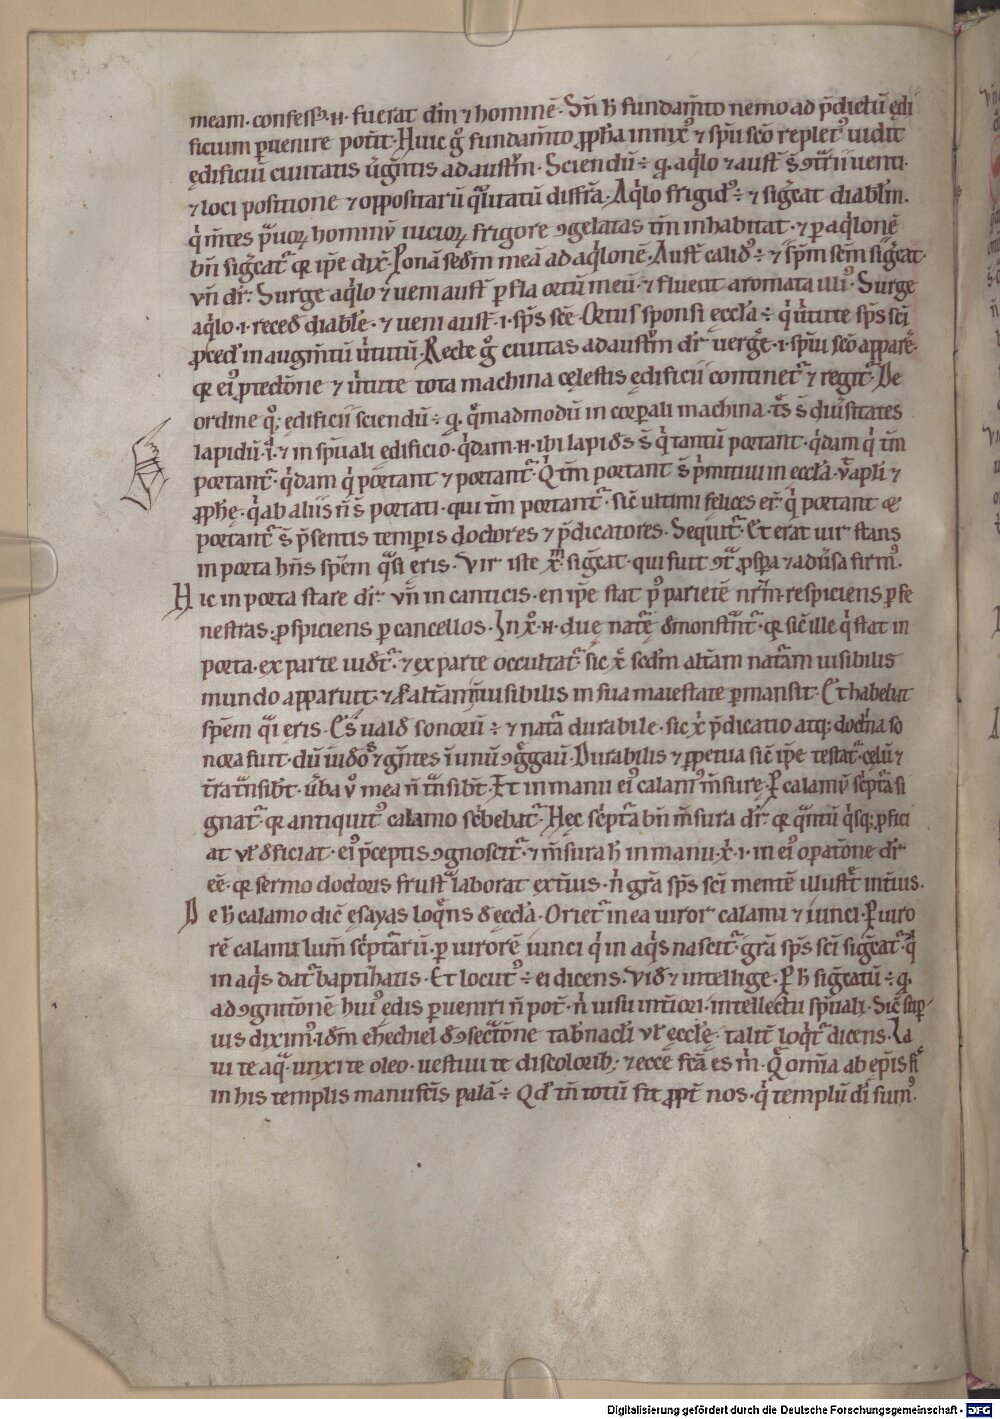 meam. confessus .n. fuerat dm̄ ⁊ hominē. Sn̄ h̄ fundam̄to nemo ad p̄dictū ędi
ficium ꝑuenire potit. Huic gͦ fundam̄to ꝓpha innixꝰ ⁊ spū scō repletꝰ uidit
ędificiū ciuitatis ad austrm̄. Sciendū ÷ aqͥlo ⁊ aust̄ uenti.
⁊ loci positione ⁊ oppositarū qͣlitatū diffr̄a. Aqͥlo frigidꝰ ÷ ⁊ sigͥcat diablm̄.
qͥ m̄tes hominū iniciorꝫ frigore ꝯgelatas tm̄ inhabitat. ⁊ ꝑ aqͥlonē
bn̄ sigͥcatͬ qr̄ ipͤ dix̄. Ponā sedm̄ meā ad aqͥlonē. Aust̄ calidꝰ ÷ ⁊ sp̄m scm̄ sigͥcat.
vn̄ drͬ. Surge aqͥlo ⁊ ueni aust̄ ꝑfla ortū meū. ⁊ fluent aromata illiꝰ. Surge
aqͥlo .i. reced̄ diable. ⁊ ueni aust̄ .i. sp̄s scē. Ortus sponsi eccl̄a ÷ qͥ uͥtute sp̄s scī
ꝓced̄ in augm̄tū uͥtutū. Recte gͦ ciuitas ad austrm̄ drͬ uergͤe .i. spū scō apparͤe.
qr̄ eiꝰ ꝓtectōne ⁊ uͥtute tota machina cęlestis ędificii continetͬ ⁊ regitͬ. De
ordine qͦꝫ ędificii sciendū ÷ qꝫ qͤmadmodū in corꝑali machina diuͥsitates
lapidū. ⁊ in spūali edificio. qͥdam .n. ibi lapides s̄ qͥ tantū portant. qͥdam qͥ tm̄
portantͬ. qͥdam qͥ portant ⁊ portantͬ. Qͥ tm̄ portant s̄ pͥmitiui in eccl̄a. vͭ apl̄i ⁊
ꝓphę. qͥ ab aliis n̄ s̄ portati. qui tm̄ portantͬ. sic̄ ultimi felices erͭ. qͥ portant ⁊
portantͬ s̄ p̄sentis temꝑis doctores ⁊ p̄dicatores. Sequitͬ. Et erat uir stans
in porta hn̄s spēm qͣsi ęris. Vir iste xp̄m sigͥcat. qui fuit ꝯtͣ ꝓspͤra ⁊ aduͥsa firmꝰ.
Hic in porta stare drͬ vn̄ in canticis. en ipͤ stat pꝰ parietē nrm̄. respiciens ꝑ fe
nestras. ꝓspiciens ꝑ cancellos. In xͦ .n. duę natͤ demonstͣntͬ. qr̄ sic̄ ille qͥ stat in
porta. ex parte uidetͬ. ⁊ ex parte occultatͬ. sic xͨ sedm̄ altͤam natͣam uisibilis
mundo apparuit. ⁊ altͤam inuisibilis in sua maiestate ꝑmansit. Et habebat
spēm qͣi ęris. Es uald̄ sonorū ÷ ⁊ natͣa durabile. sic xͥ p̄dicatio atqꝫ doctͥna so
nora fuit. dū iudeos ⁊ gn̄tes ī unū ꝯgͤgauit. Durabilis ⁊ ꝑpetua sic̄ ipͤ testatͬ. cęlū ⁊
tͤra tͣnsibt̄. uͤba vͦ mea n̄ tͣnsibt̄. Et in manu eiꝰ calamꝰ m̄surę. Ꝑ calamū scͥptͣa si
gnatͬ. qr̄ antiquitꝰ calamo scͥbebatͬ. Hec scͥptͣa bn̄ m̄sura drͬ. qr̄ qͣntū qͥsqꝫ ꝓfici
at vl̄ deficiat. eiꝰ p̄ceptis ꝯgnoscitͬ. ⁊ m̄sura h̄ in manu xͥ .i. in eiꝰ oꝑatōne drͬ
eē. qr̄ sermo doctoris frustͣ laborat extͥius. nͥ grͣa sp̄s scī mentē illustͤt intͥius.
De h̄ calamo dic̄ ęsayas loqͤns de eccl̄a. Orietͬ in ea uiror calami ⁊ iunci. Ꝑ uiro
rē calami lum̄ scͥptͣarū. ꝑ uirorē iunci qͥ in aqͥs nascitͬ. grͣa sp̄s scī sigͥcatͬ. qͥ
in aqͥs datͬ baptizatis. Et locutꝰ ÷ ei dicens. Vide ⁊ intellige. Ꝑ h̄ sigͥcatū ÷ qꝫ
ad ꝯgnitōnē huiꝰ ędis ꝑueniri n̄ potͭ. nͥ uisu intͥiori. intellectu spūali. Sic̄ suꝑ
ius diximꝰ. idm̄ ezechiel de ꝯsecͣtōne tab̄nacli vl̄ ęccl̄ę. talit̄ loqͥtͬ dicens. La
ui te aqͣ. unxi te oleo. uestiui te discoloribꝫ. ⁊ ecce fcͣa es m̄. Qͤ omīa ab ep̄is fi
in his templis manufcͣis palā ÷ Qd̄ tn̄ totū fit ꝓpt̄ nos. qͥ templū dī sumꝰ.
Digitalisierung gefördert durch die Deutsche Forschungsgemeinschaft - DFG